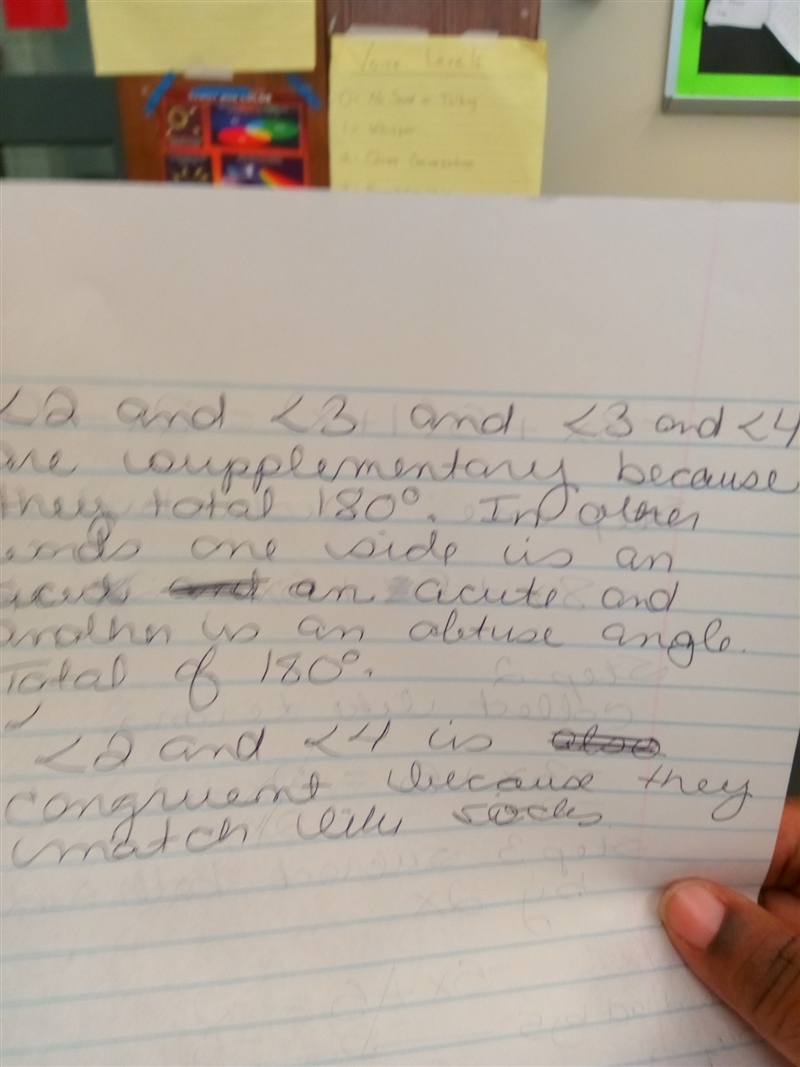 Voice Levels
0- No Sound or Talking
1- Whisper
2- Quiet Conversation
<2 and <3 and <3 and <4
are supplementary because
they total 180°. In other
words one side is an
acute and an acute and
another is an obtuse angle.
Total of 180°.
<2 and <4 is also
congruent because they
match like socks
Step 2
Step 3
by 2x